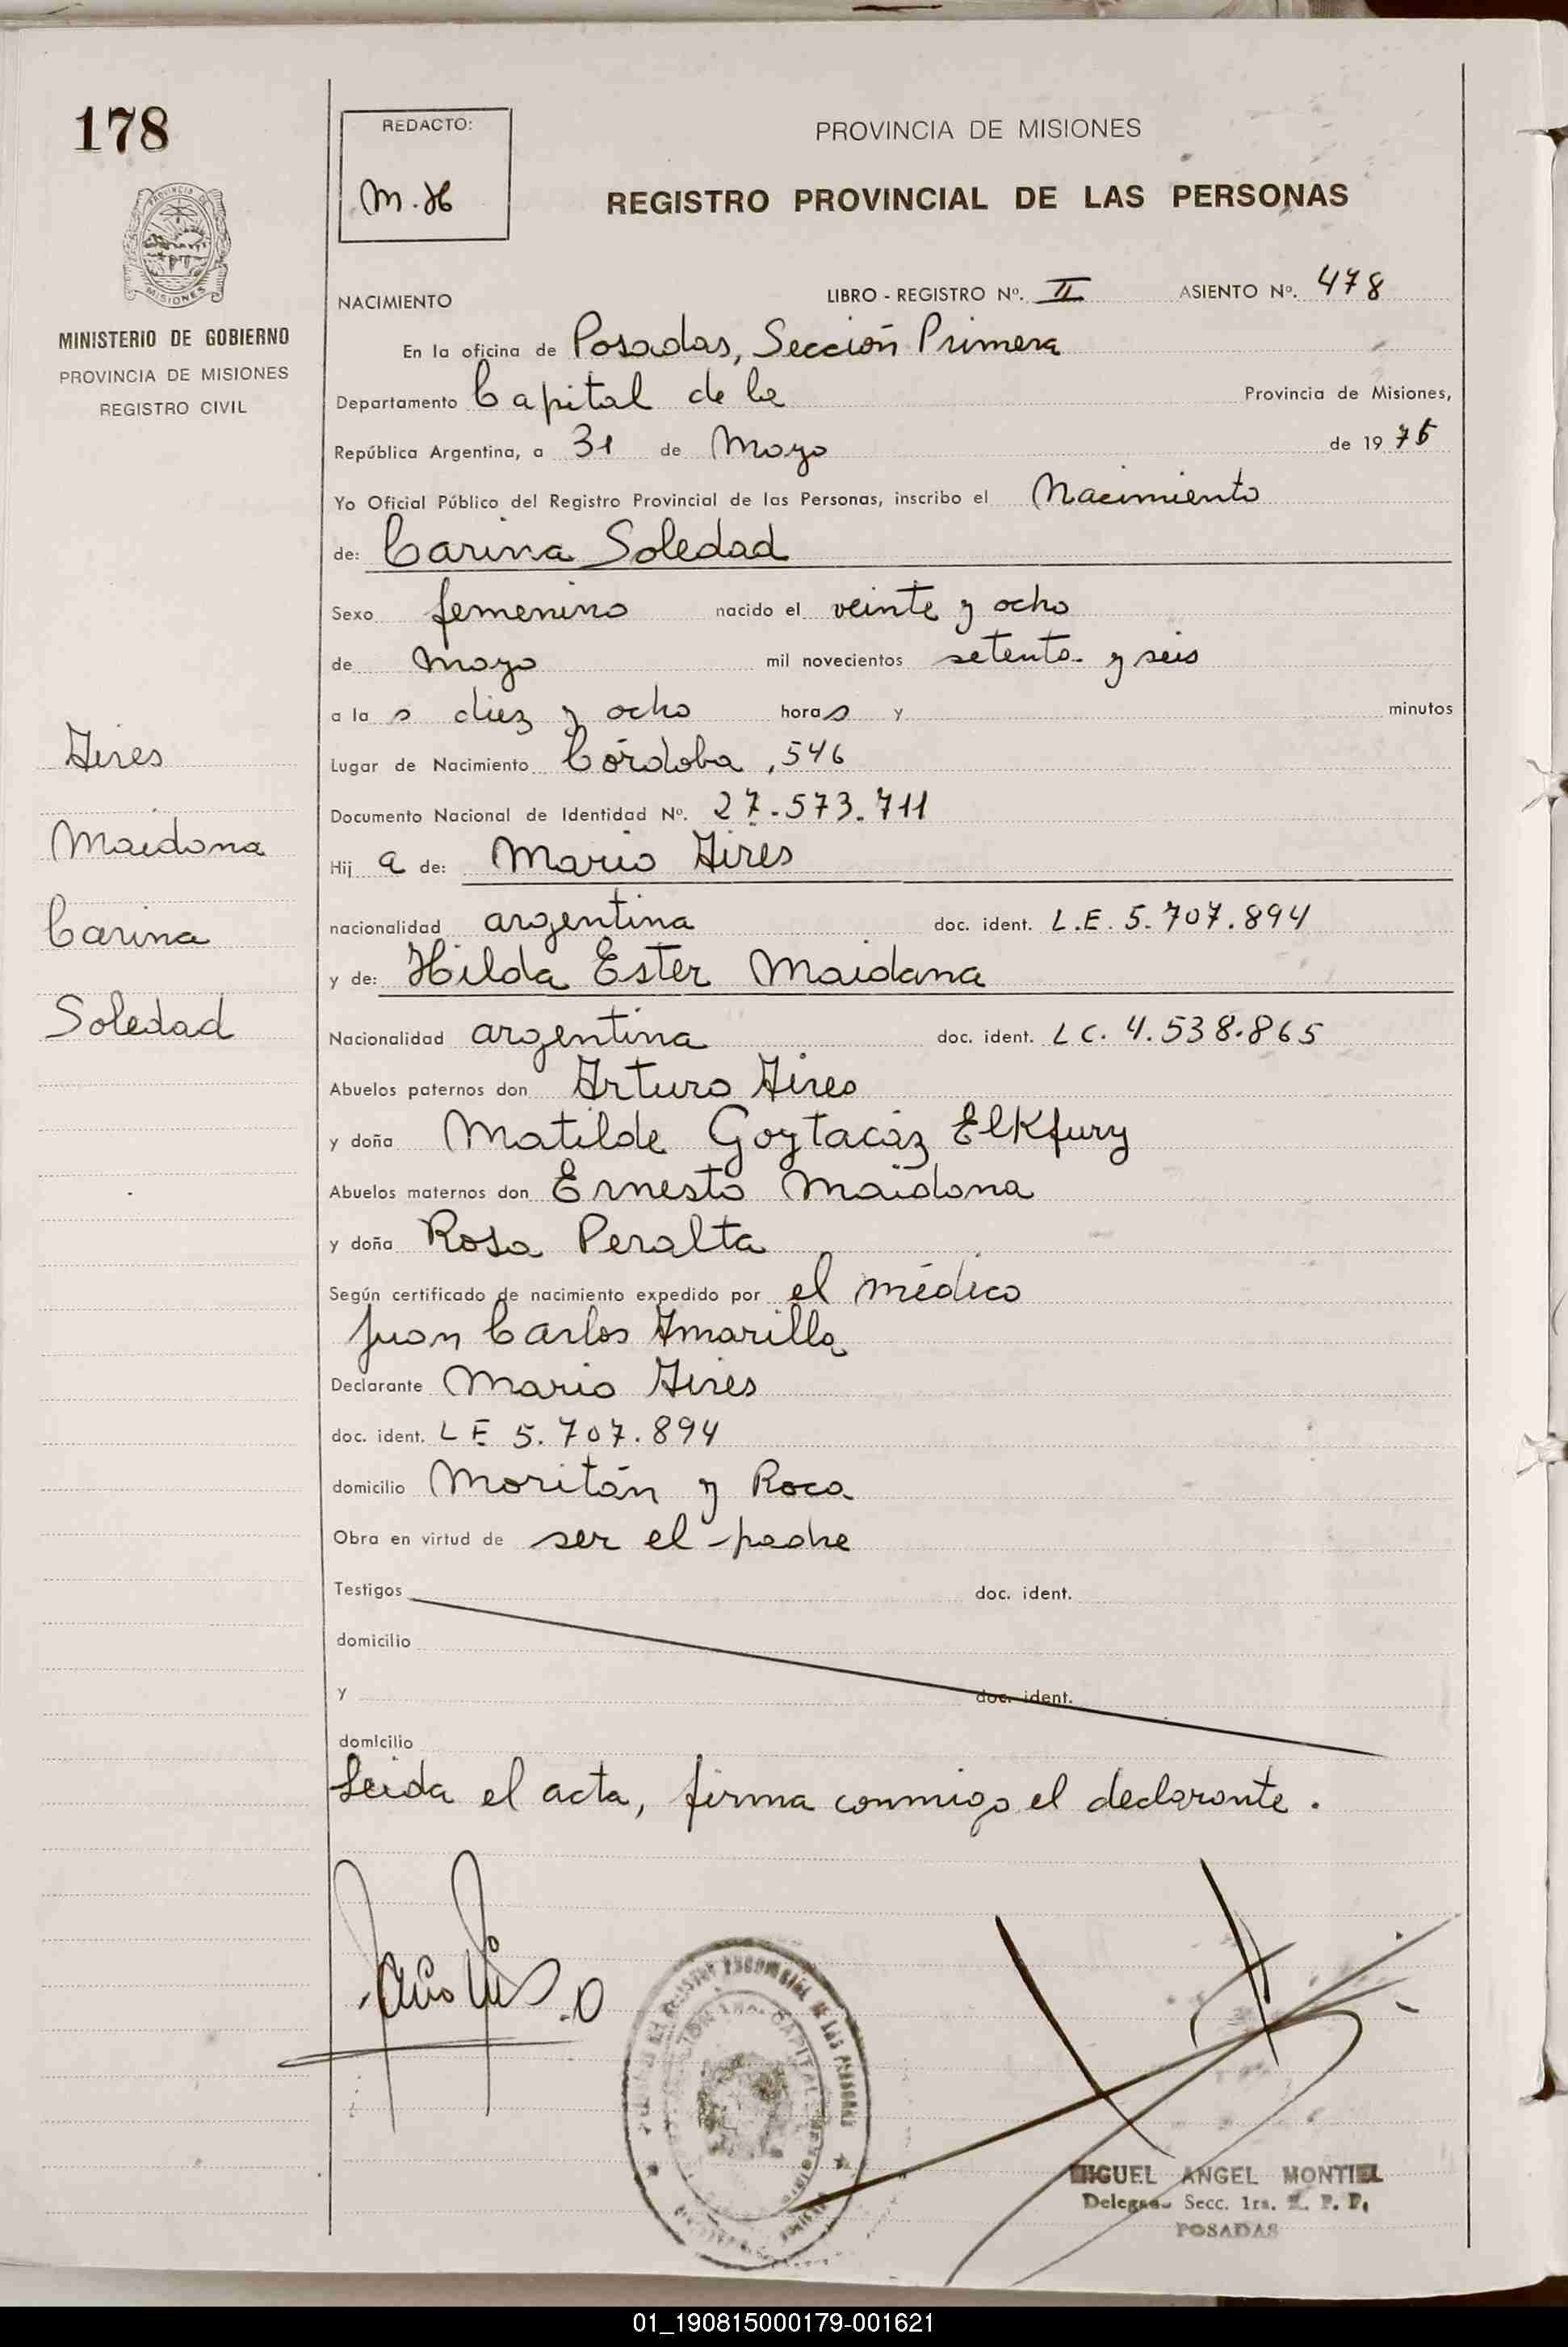 178
PROVINCIA DE
MISIONES
MINISTERIO DE GOBIERNO
PROVINCIA DE MISIONES
REGISTRO CIVIL
REDACTO:
M.H
PROVINCIA DE MISIONES
REGISTRO PROVINCIAL DE LAS PERSONAS
NACIMIENTO LIBRO - REGISTRO Nº. II ASIENTO Nº. 478
En la oficina de Posadas, Sección Primera
Departamento Capital de la Provincia de Misiones,
República Argentina, a 31 de Mayo de 1976
Yo Oficial Público del Registro Provincial de las Personas, inscribo el Nacimiento
de: Carina Soledad
Sexo femenino nacido el veinte y ocho
de mayo mil novecientos setenta y seis
a la s diez y ocho horas y minutos
Lugar de Nacimiento Córdoba, 546
Documento Nacional de Identidad Nº. 27.573.711
Hij a de: Mario Aires
nacionalidad argentina doc. ident. L.E. 5.707.894
y de: Hilda Ester Maidana
Nacionalidad argentina doc. ident. LC. 4.538.865
Abuelos paternos don Arturo Aires
y doña Matilde Goytacáz Elkfury
Abuelos maternos don Ernesto Maidana
y doña Rosa Peralta
Según certificado de nacimiento expedido por el médico
Juan Carlos Amarilla
Declarante Mario Aires
doc. ident. LE 5.707.894
domicilio Moritán y Roca
Obra en virtud de ser el padre
Testigos doc. ident.
domicilio
y doc. ident.
domicilio
Leida el acta, firma conmigo el declarante.
Aires
Maidana
Carina
Soledad
MIGUEL ANGEL MONTIEL
Delegado Secc. 1ra. R. P. P.
POSADAS
01_190815000179-001621